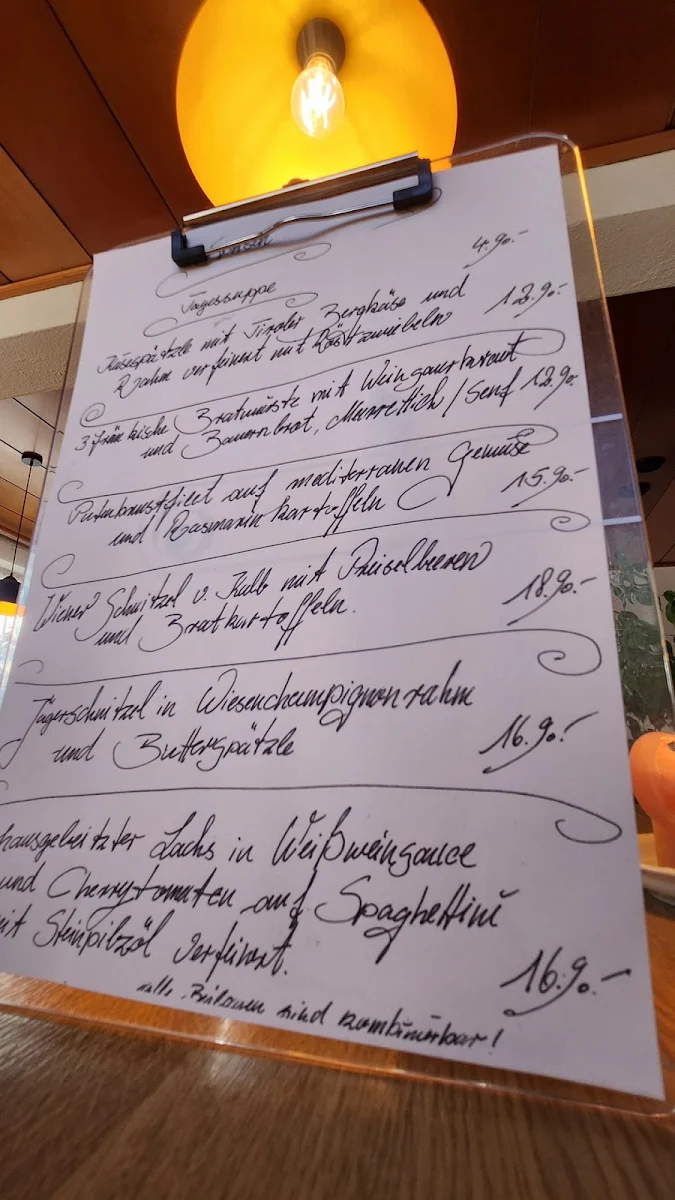 Tagessuppe
4.90.-
Käsespätzle mit Tiroler Bergkäse und
Rahm verfeinert mit Röstzwiebeln
12.90.-
3 fränkische Bratwürste mit Weinsauerkraut
und Bauernbrot, Meerrettich / Senf 12.90.-
Putenbrustfilet auf mediterranen Gemüse
und Rosmarin Kartoffeln
15.90.-
Wiener Schnitzel v. Kalb mit Preiselbeeren
und Bratkartoffeln.
18.90.-
Jägerschnitzel in Wiesenchampignonrahm
und Butterspätzle
16.90.-
hausgebeitzter Lachs in Weißweinsauce
und Cherrytomaten auf Spaghettini
mit Steinpilzöl verfeinert.
16.90.-
alle Beilagen sind kombinierbar!